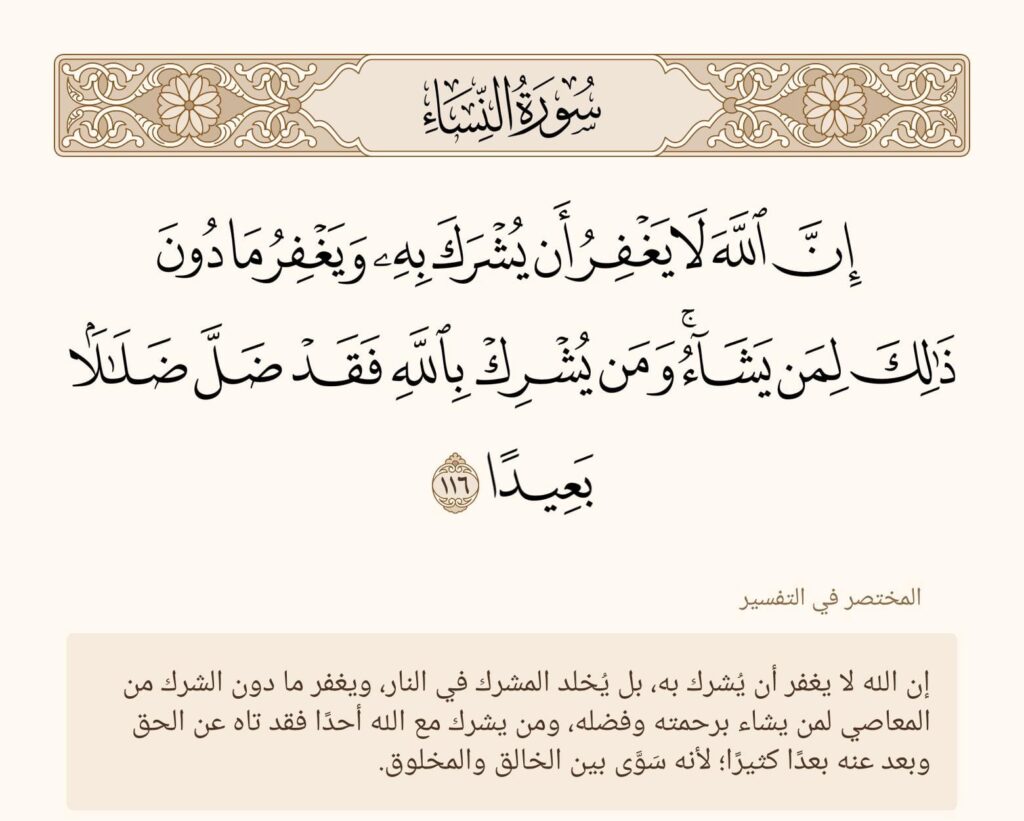 سُورَةُ النِّسَاءِ
إِنَّ ٱللَّهَ لَا يَغۡفِرُ أَن يُشۡرَكَ بِهِۦ وَيَغۡفِرُ مَا دُونَ
ذَٰلِكَ لِمَن يَشَآءُۚ وَمَن يُشۡرِكۡ بِٱللَّهِ فَقَدۡ ضَلَّ ضَلَٰلَۢا
بَعِيدًا ١١٦
المختصر في التفسير
إن الله لا يغفر أن يُشرك به، بل يُخلد المشرك في النار، ويغفر ما دون الشرك من
المعاصي لمن يشاء برحمته وفضله، ومن يشرك مع الله أحدًا فقد تاه عن الحق
وبعد عنه بعدًا كثيرًا؛ لأنه سَوَّى بين الخالق والمخلوق.